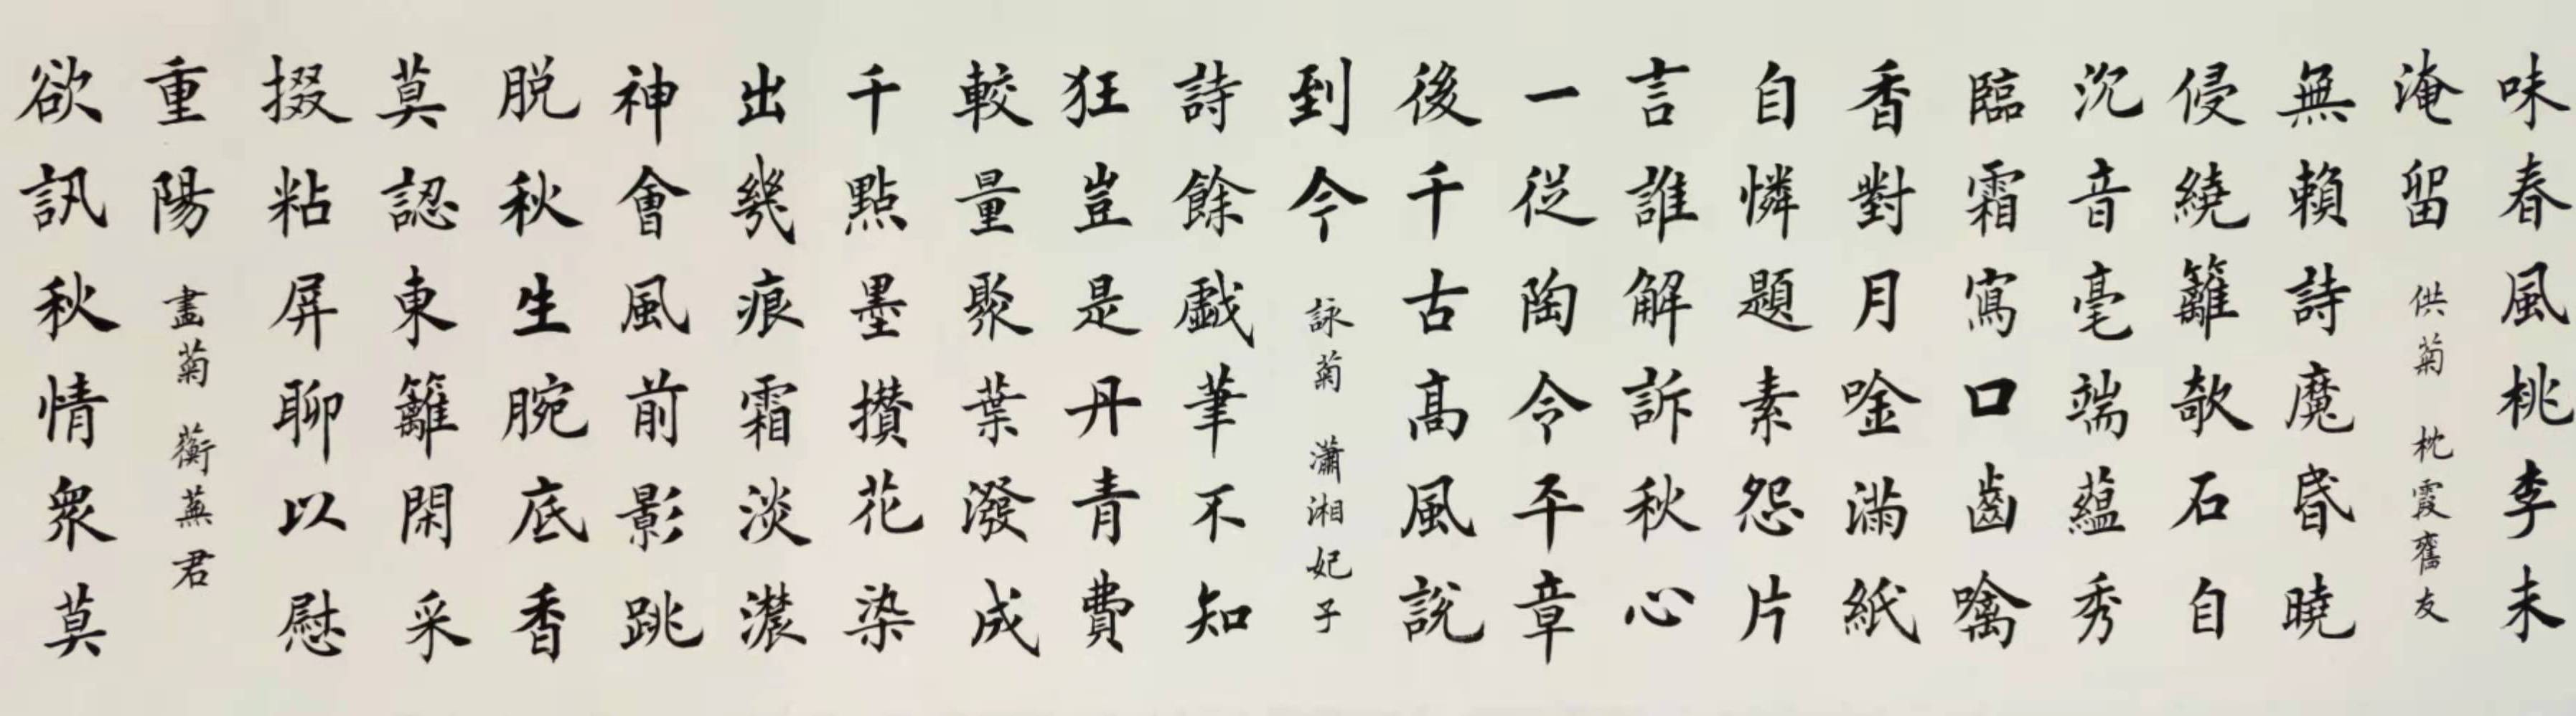 味春風桃李未
淹留 供菊 枕霞舊友
無賴詩魔昏曉
侵繞籬欹石自
沉音毫端蘊秀
臨霜寫口齒噙
香對月唫滿紙
自憐題素怨片
言誰解訴秋心
一從陶令平章
後千古高風說
到今 詠菊 瀟湘妃子
詩餘戲筆不知
狂豈是丹青費
較量聚葉潑成
千點墨攢花染
出幾痕霜淡濃
神會風前影跳
脱秋生腕底香
莫認東籬閑采
掇粘屏聊以慰
重陽 畫菊 蘅蕪君
欲訊秋情衆莫